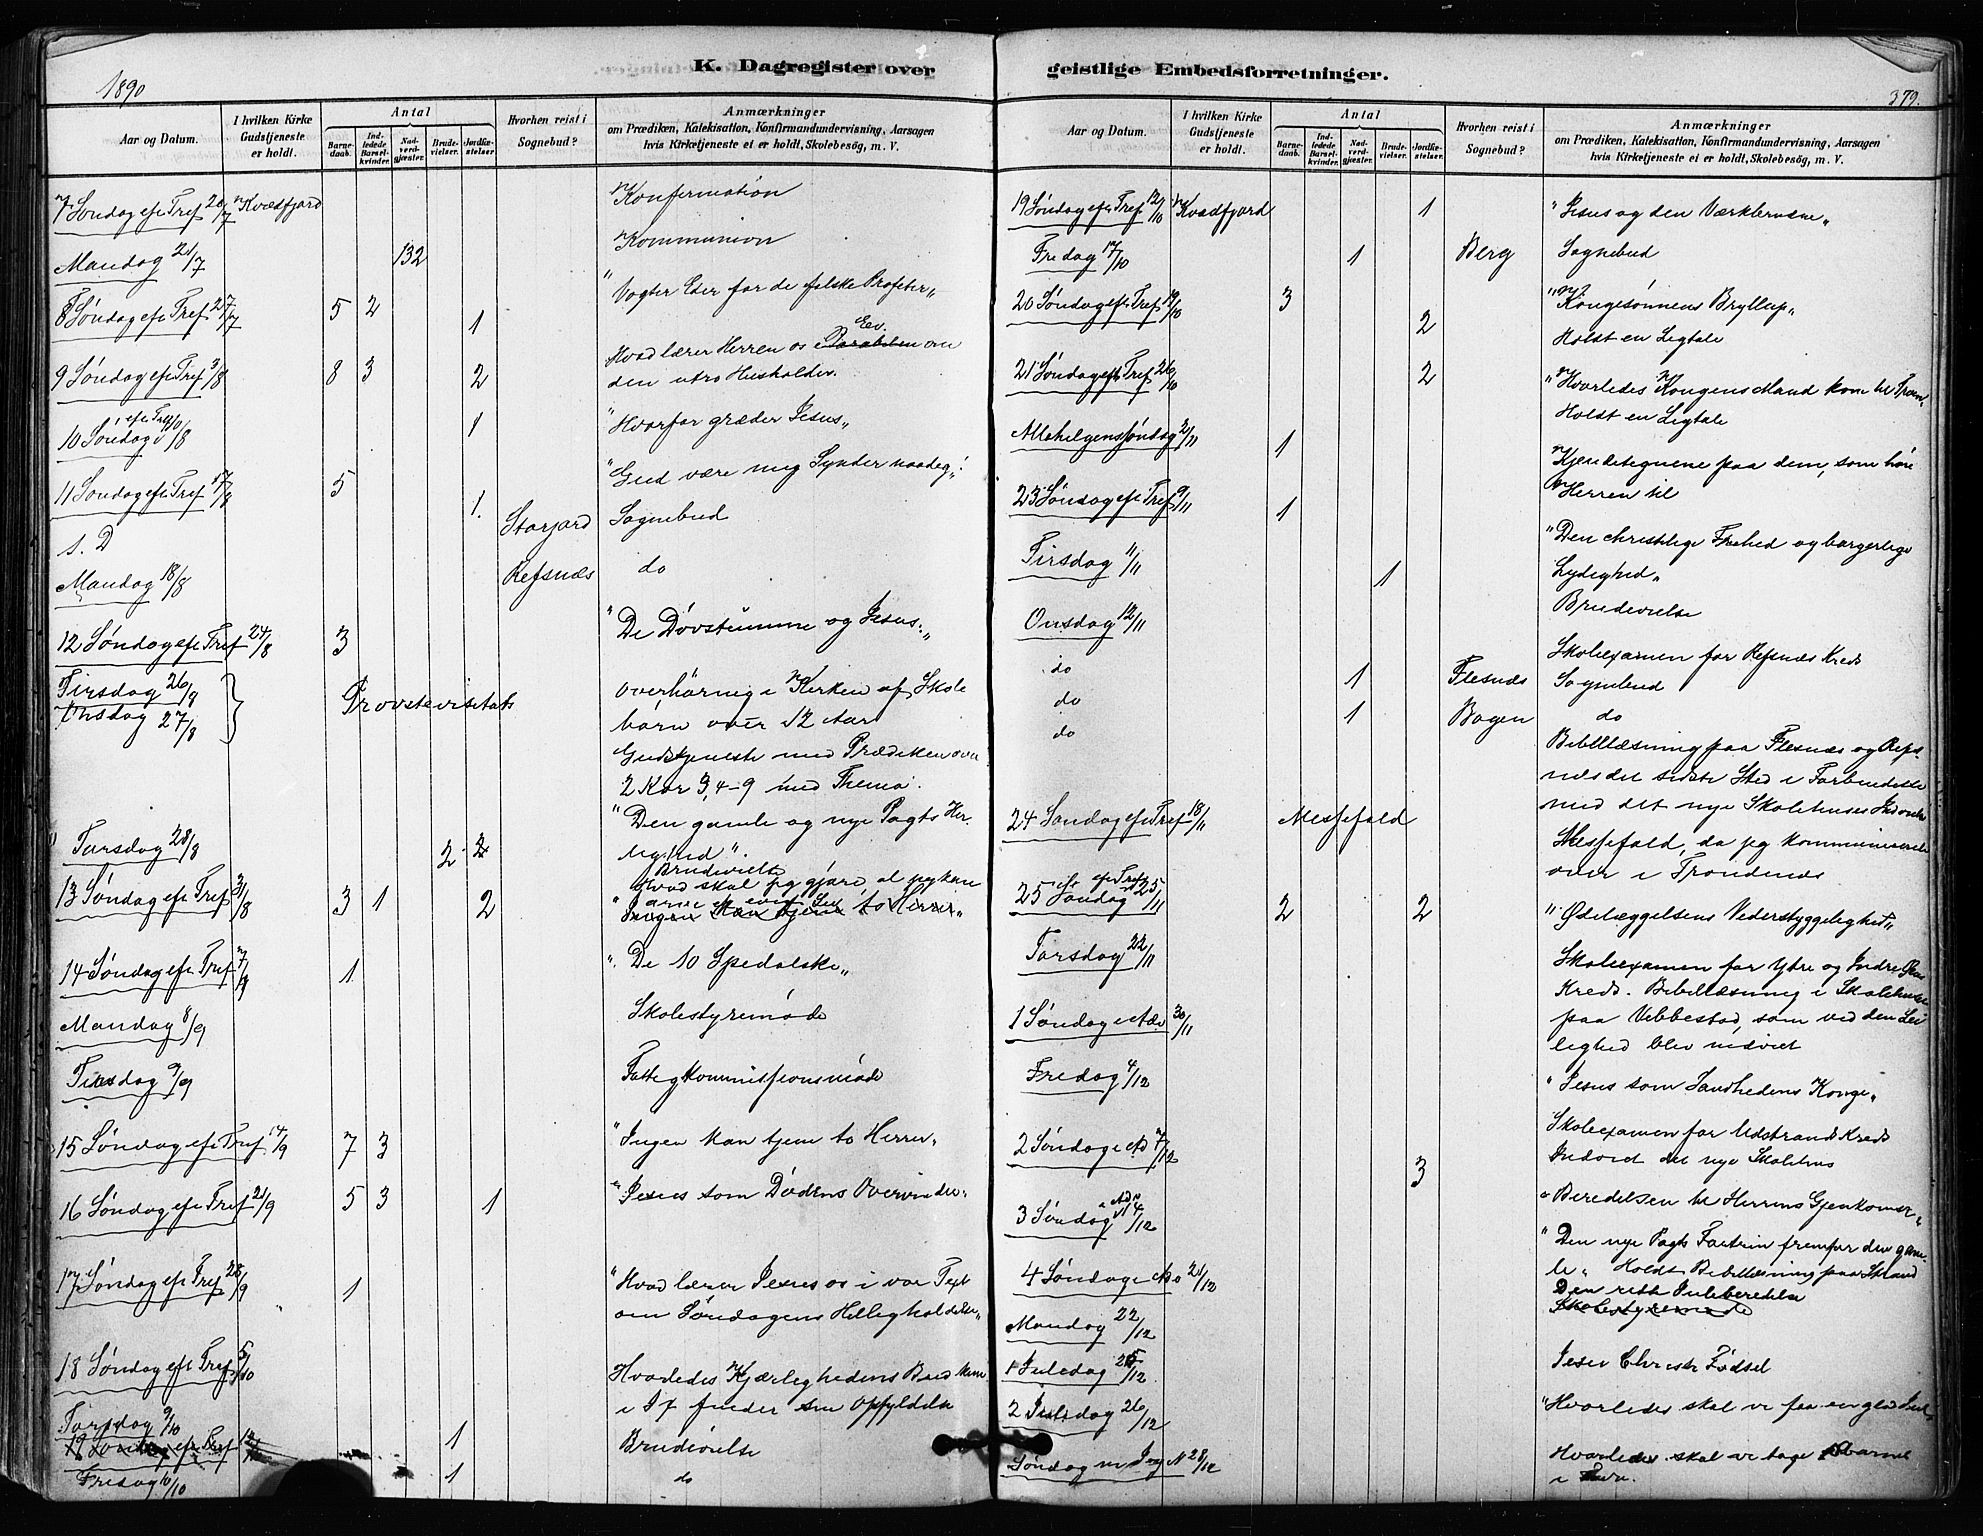 K. Dagregister over
1890
Aar og Datum.
I hvilken Kirke Gudstjeneste er holdt.
Antal
Barne-daab.
Ind-ledede Barsel-kvinder.
Nad-verd-gjæster.
Brude-vielser.
Jordfæ-stelser.
Hvorhen reist i Sognebud?
Anmærkninger
om Prædiken, Katekisation, Konfirmandundervisning, Aarsagen
hvis Kirketjeneste ei er holdt, Skolebesög, m. V.
7 Søndag eft Tref 20/7 Kvædfjord Konfirmation
Mandag 21/7 132 Kommunion
8 Søndag eft Tref 27/7 5 2 1 "Vogter Eder for de falske Profeter"
9 Søndag eft Tref 3/8 8 3 2 Hvad lærer Herren os i Parabelen Ev. om
den utro Husholder.
10 Søndag eft Tref 10/8 1 "Hvorfor græder Jesus"
11 Søndag eft Tref 17/8 5 1. "Gud være mig Synder naadig!"
s. D Storjord Sognebud
Mandag 18/8 Refsnæs do
12 Søndag eft Tref 24/8 3 "De Døvstumme og Jesus:"
Tirsdag 26/8 Provstevisitats Overhøring i Kirken af Skole
Onsdag 27/8 børn over 12 Aar
Gudstjeneste med Prædiken over
2 Kor 3,4-9 med Thema:
"Den gamle og nye Pagts Her-
lighed".
Torsdag 28/8 2 2 Brudevielse
13 Søndag eft Tref 31/8 3 1 2 Hvad skal jeg gjøre, at jeg kan
arve et evigt Liv
"Ingen Kan tjene to Herrer"
14 Søndag eft Tref 7/9 1 "De 10 Spedalske"
Mandag 8/9 Skolestyremøde
Tirsdag 9/9 Fattigkommissionsmøde
15 Søndag eft Tref 14/9 7 3 "Ingen kan tjene to Herrer"
16 Søndag eft Tref 21/9 5 3 1 "Jesus som Dødens Overvinder"
17 Søndag eft Tref 28/9 1 "Hvad lærer Jesus os i vor Text
om Søndagens Helligholdelse"
18 Søndag eft Tref 5/10 Hvorledes Kjærlighedens Bud
i finder sin Opfyldelse
Torsdag 9/10 1 Brudevielse
19 Søndag eft Tref 12/10
Fredag 10/10 1 do
geistlige Embedsforretninger.
379.
Aar og Datum.
I hvilken Kirke Gudstjeneste er holdt.
Antal
Barne-daab.
Ind-ledede Barsel-kvinder.
Nad-verd-gjæster.
Brude-vielser.
Jordfæ-stelser.
Hvorhen reist i Sognebud?
Anmærkninger
om Prædiken, Katekisation, Konfirmandundervisning, Aarsagen
hvis Kirketjeneste ei er holdt, Skolebesög, m. V.
19 Søndag eft Tref 12/10 Kvædfjord 1 "Jesus og den Værkbrudne"
Fredag 17/10 1 Berg Sognebud
20 Søndag eft Tref 19/10 3 2 "Kongesønnens Bryllup"
Holdt en Ligtale
21 Søndag eft Tref 26/10 2 "Hvorledes Kongens Mand kom til Troen"
Holdt en Ligtale
Allehelgenssøndag 2/11 1 "Kjendetegnene paa dem, som høre
Herren til
23 Søndag eft Tref 9/11 1 "Den christelige Frihed og borgerlige
Lydighed"
Tirsdag 11/11 1 Brudevielse
Onsdag 12/11 Skoleexamen for Refsnæs Kreds
do 1 Flesnæs Sognebud
do 1 Bogen do
do Bibellæsning paa Flesnæs og Refs-
næs det sidste Sted i Forbindelse
med det nye Skolehuses
24 Søndag eft Tref 16/11 Messefald Messefald, da jeg kommunicerede
ovre i Trondenæs
25 Søndag eft Tref 2 2 "Ødelæggelsens Vederstyggelighed"
Torsdag 22/11 Skoleexamen for Ytre og Indre
Kreds. Bibellæsning i Skolehuset
1 Søndag i Adv 30/11 paa Vebbestad, som ved den Lei-
lighed blev indviet
Fredag 4/12 "Jesus som Sandhedens Konge"
Skoleexamen for Utstrands Kreds
2 Søndag i Ad 7/12 3 Indviet det nye Skolehus
"Beredelsen til Herrens Gjenkomst"
3 Søndag i Adv 14/12 "Den nye Pagts Fortrin fremfor den gam-
le" Holdt Bibellæsning paa Strand
4 Søndag i Adv 21/12 Den rette Juleberedelse
Mandag 22/12 Skolestyremøde
1 Juledag 25/12 Jesu Christi Fødsel
2 Juledag 26/12 "Hvorledes skal vi faa en glad Jul"
Søndag m J og N 28/12 Hvorledes skal vi tage Barnet
i Favn.